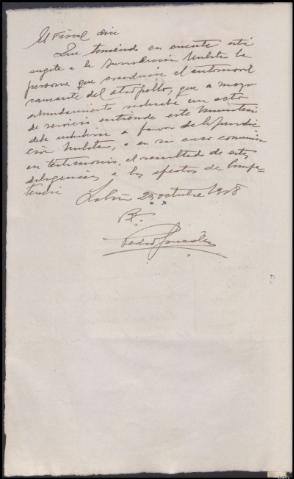 El Fiscal dice
Que teniendo en cuenta está
sugeto a la Jurisdicción Militar la
persona que conducia el automovil
causante del atropello, que a mayo
abundamiento realizaba un acto
de servicio entiende este Ministerio
debe inhibirse a favor de la Jurisdic
ción Militar, o en su caso comunicar
en testimonio, el resultado de estas
diligencias, a los efectos de Compe
tencia
25 octubre 1928
Pedro González